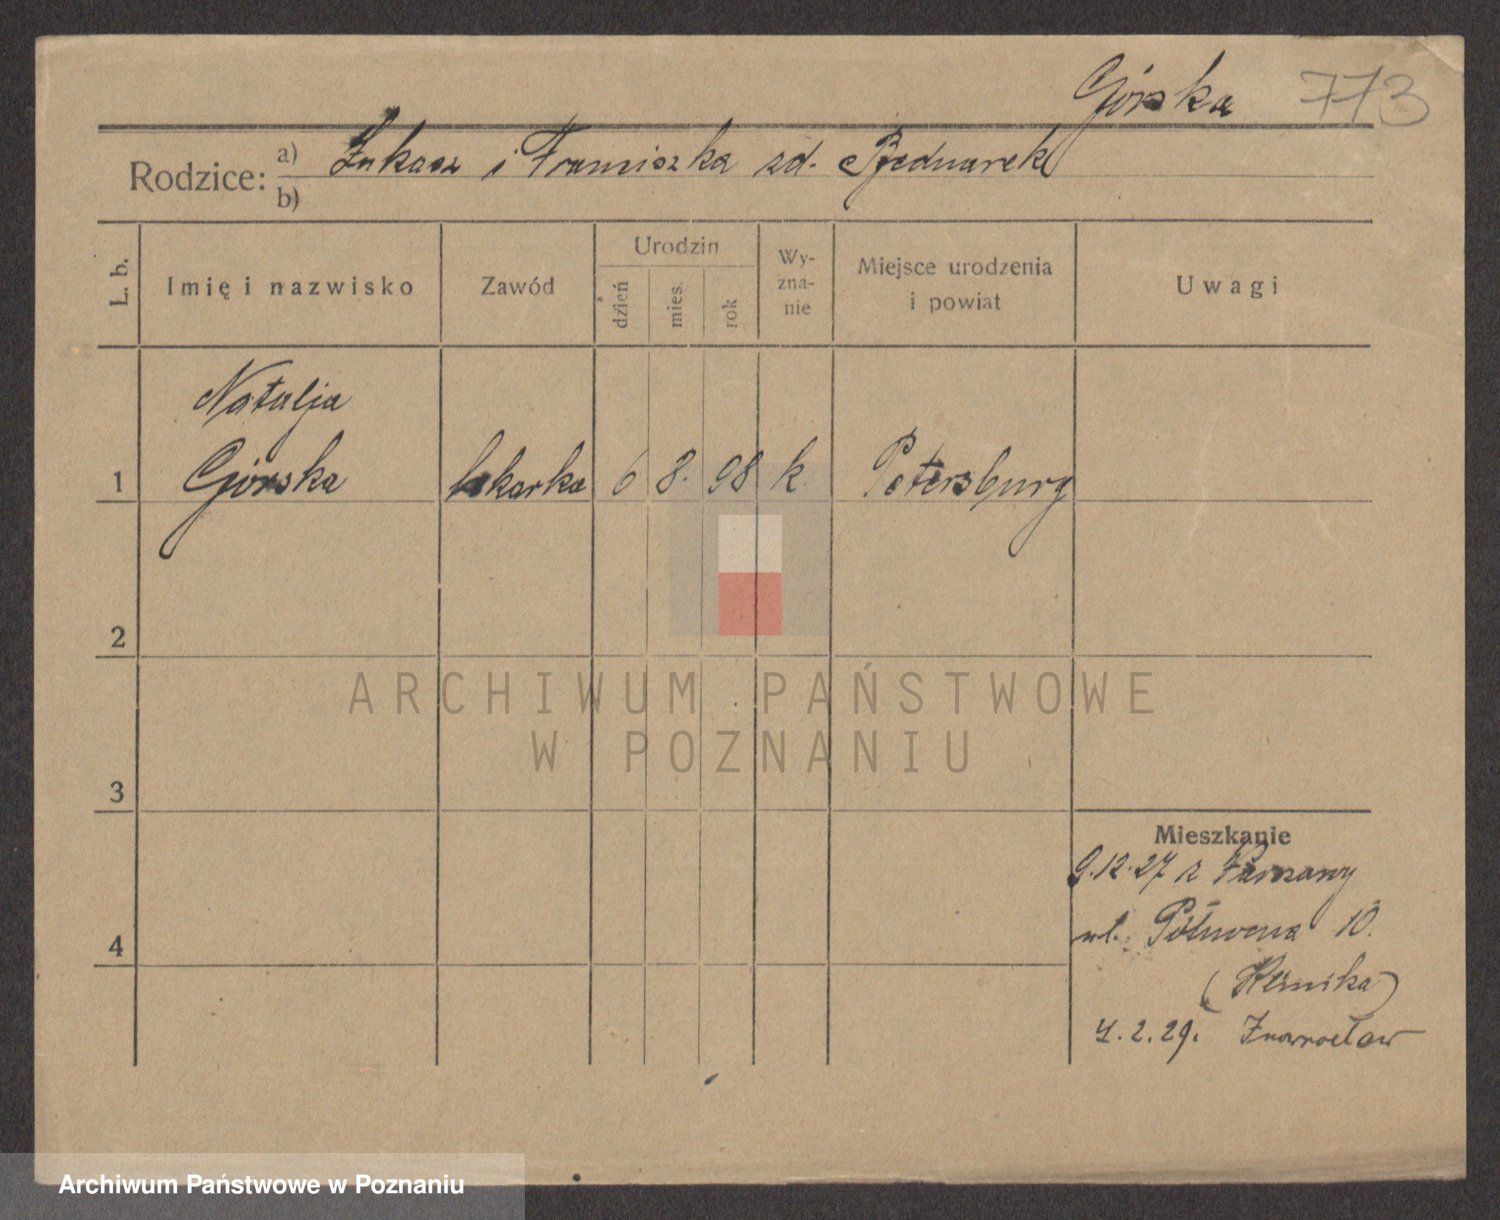 Górska 773
Rodzice:
a) Łukasz i Franciszka zd. Bednarek
b)
L. b.
Imię i nazwisko
Zawód
Urodzin
dzień
mies.
rok
Wy-
zna-
nie
Miejsce urodzenia
i powiat
Uwagi
Natalja
1 Górska lekarka 6 8. 98 k. Petersburg
2
ARCHIWUM PAŃSTWOWE
W POZNANIU
3
Mieszkanie
9.12.27 z Warszawy
ul. Północna 10.
4
4.2.29. Inowrocław
Archiwum Państwowe w Poznaniu